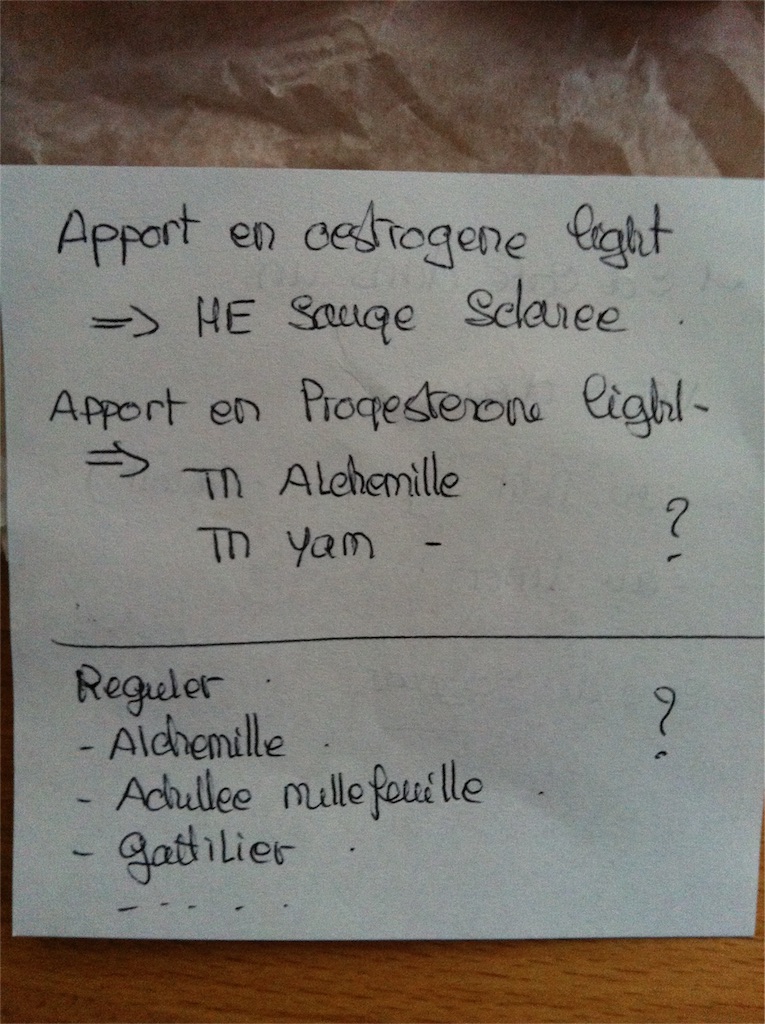 Apport en oestrogene light
=> HE Sauge Sclaree .
Apport en Progesterone light -
=> TM Alchemille .
TM Yam - ?
Reguler .
- Alchemille . ?
- Achillee millefeuille .
- gattilier .
- - - - -